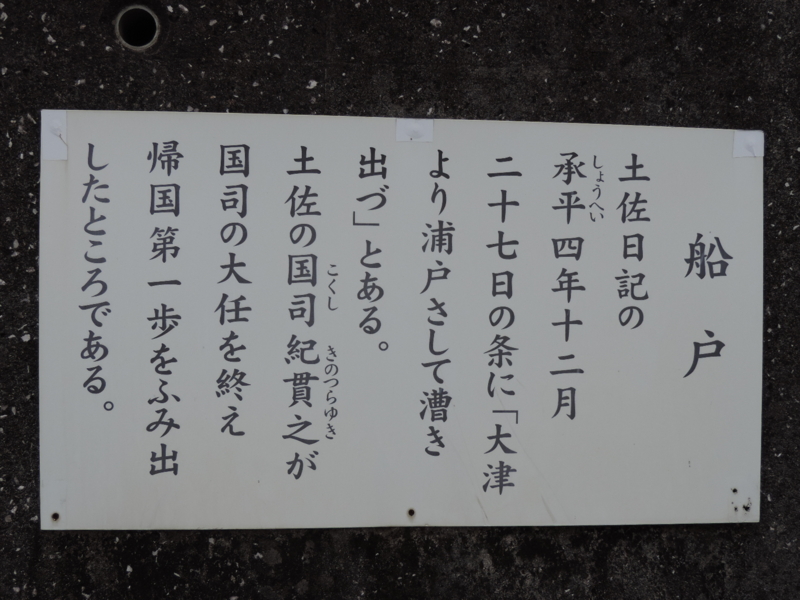 船戸
土佐日記の
承平四年十二月
しょうへい
二十七日の条に「大津
より浦戸さして漕き
出づ」とある。
土佐の国司紀貫之が
こくし きのつらゆき
国司の大任を終え
帰国第一歩をふみ出
したところである。